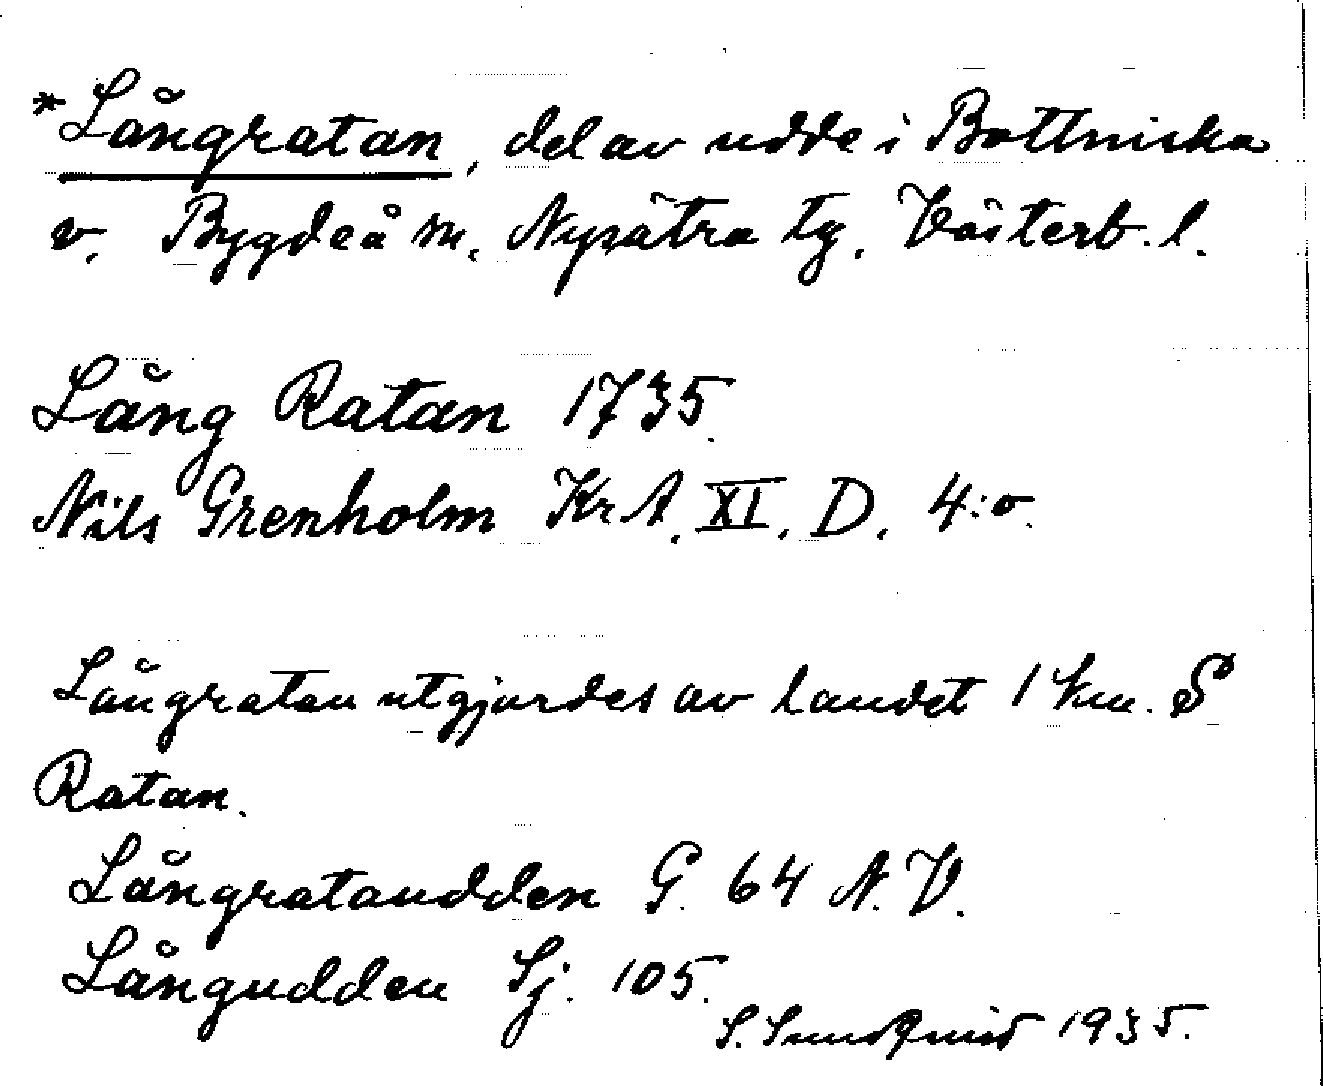 *Långratan, del av udde i Bottniska
v. Bygdeå sn. Nysätra tg. Västerb. l.
Lång Ratan 1735.
Nils Grenholm Kr A. XI. D. 4:o.
Långratan utgjordes av landet 1 km. S
Ratan.
Långrataudden G. 64 N.V.
Långudden Sj. 105.
S. Sundqvist 1935.